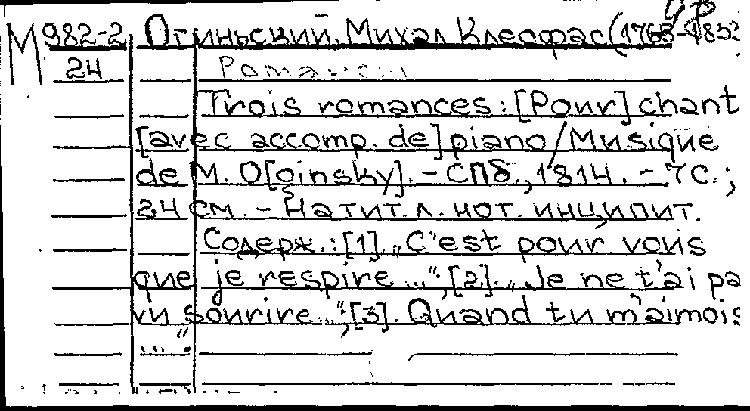 М982-2 Огиньский, Михал Клеофас (1765-1833
24 Романсы
Trois romances: [Pour] chant
[avec accomp. de] piano/Musique
de M. O[ginsky]. - СПб., 1814. - 7 с.;
24 см. - На тит. л. нот. инципит.
Содерж.: [1]. „C'est pour vous
que je respire...“; [2]. „Je ne t'ai pa
vu sourire...“; [3]. Quand tu m'aimois
...“